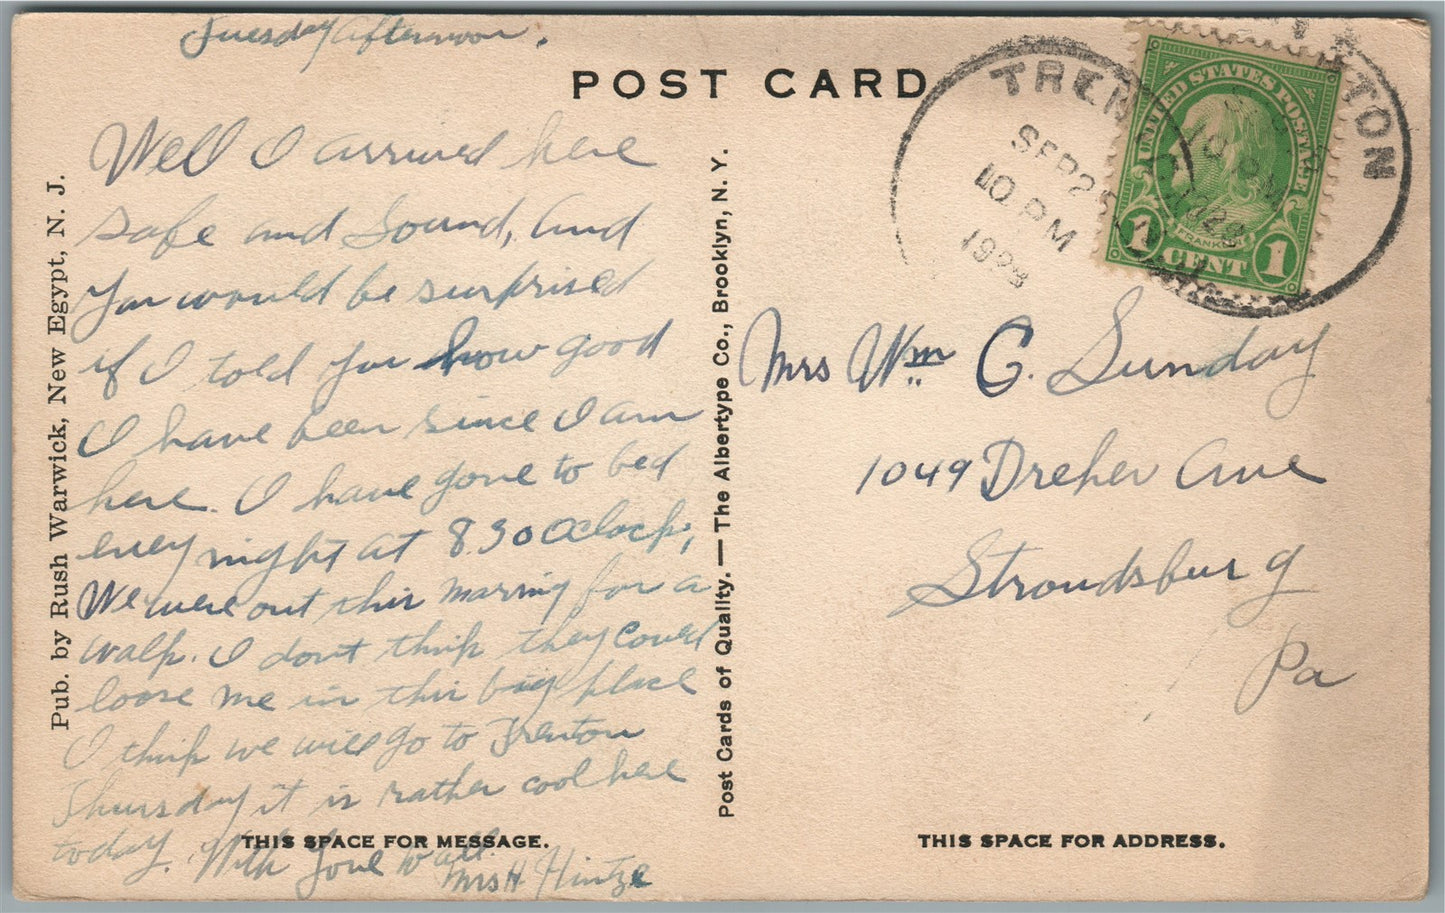 Tuesday Afternoon.
POST CARD
Well I arrived here
safe and Sound, and
You would be surprised
if I told you how good
I have been since I am
here. I have gone to bed
every night at 8.30 O'Clock,
We were out this morning for a
walk. I dont think they could
loose me in this big place
I think we will go to Trenton
Thursday it is rather cool here
today. With Love to all.
Mrs H Hintze
THIS SPACE FOR MESSAGE.
Pub. by Rush Warwick, New Egypt, N. J.
Post Cards of Quality. — The Albertype Co., Brooklyn, N. Y.
TREN
SEP 25
10 PM
1928
TON
10 PM
1928
UNITED STATES POSTAGE
FRANKLIN
1 CENT 1
Mrs Wm G. Sunday
1049 Dreher Ave
Stroudsburg
Pa
THIS SPACE FOR ADDRESS.